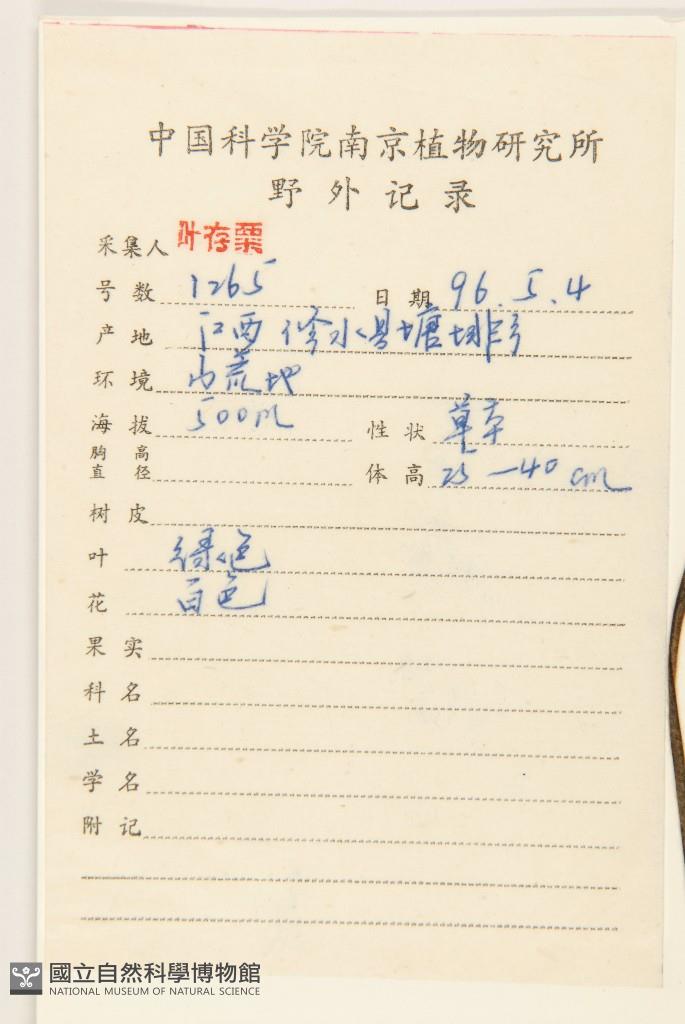 中国科学院南京植物研究所
野外记录
采集人 叶存粟
号数 1265 日期 96.5.4
产地 江西修水县塘排
环境 山荒地
海拔 500m 性状 草本
胸高直径 体高 25—40cm
树皮
叶 绿色
花 白色
果实
科名
土名
学名
附记
國立自然科學博物館
NATIONAL MUSEUM OF NATURAL SCIENCE